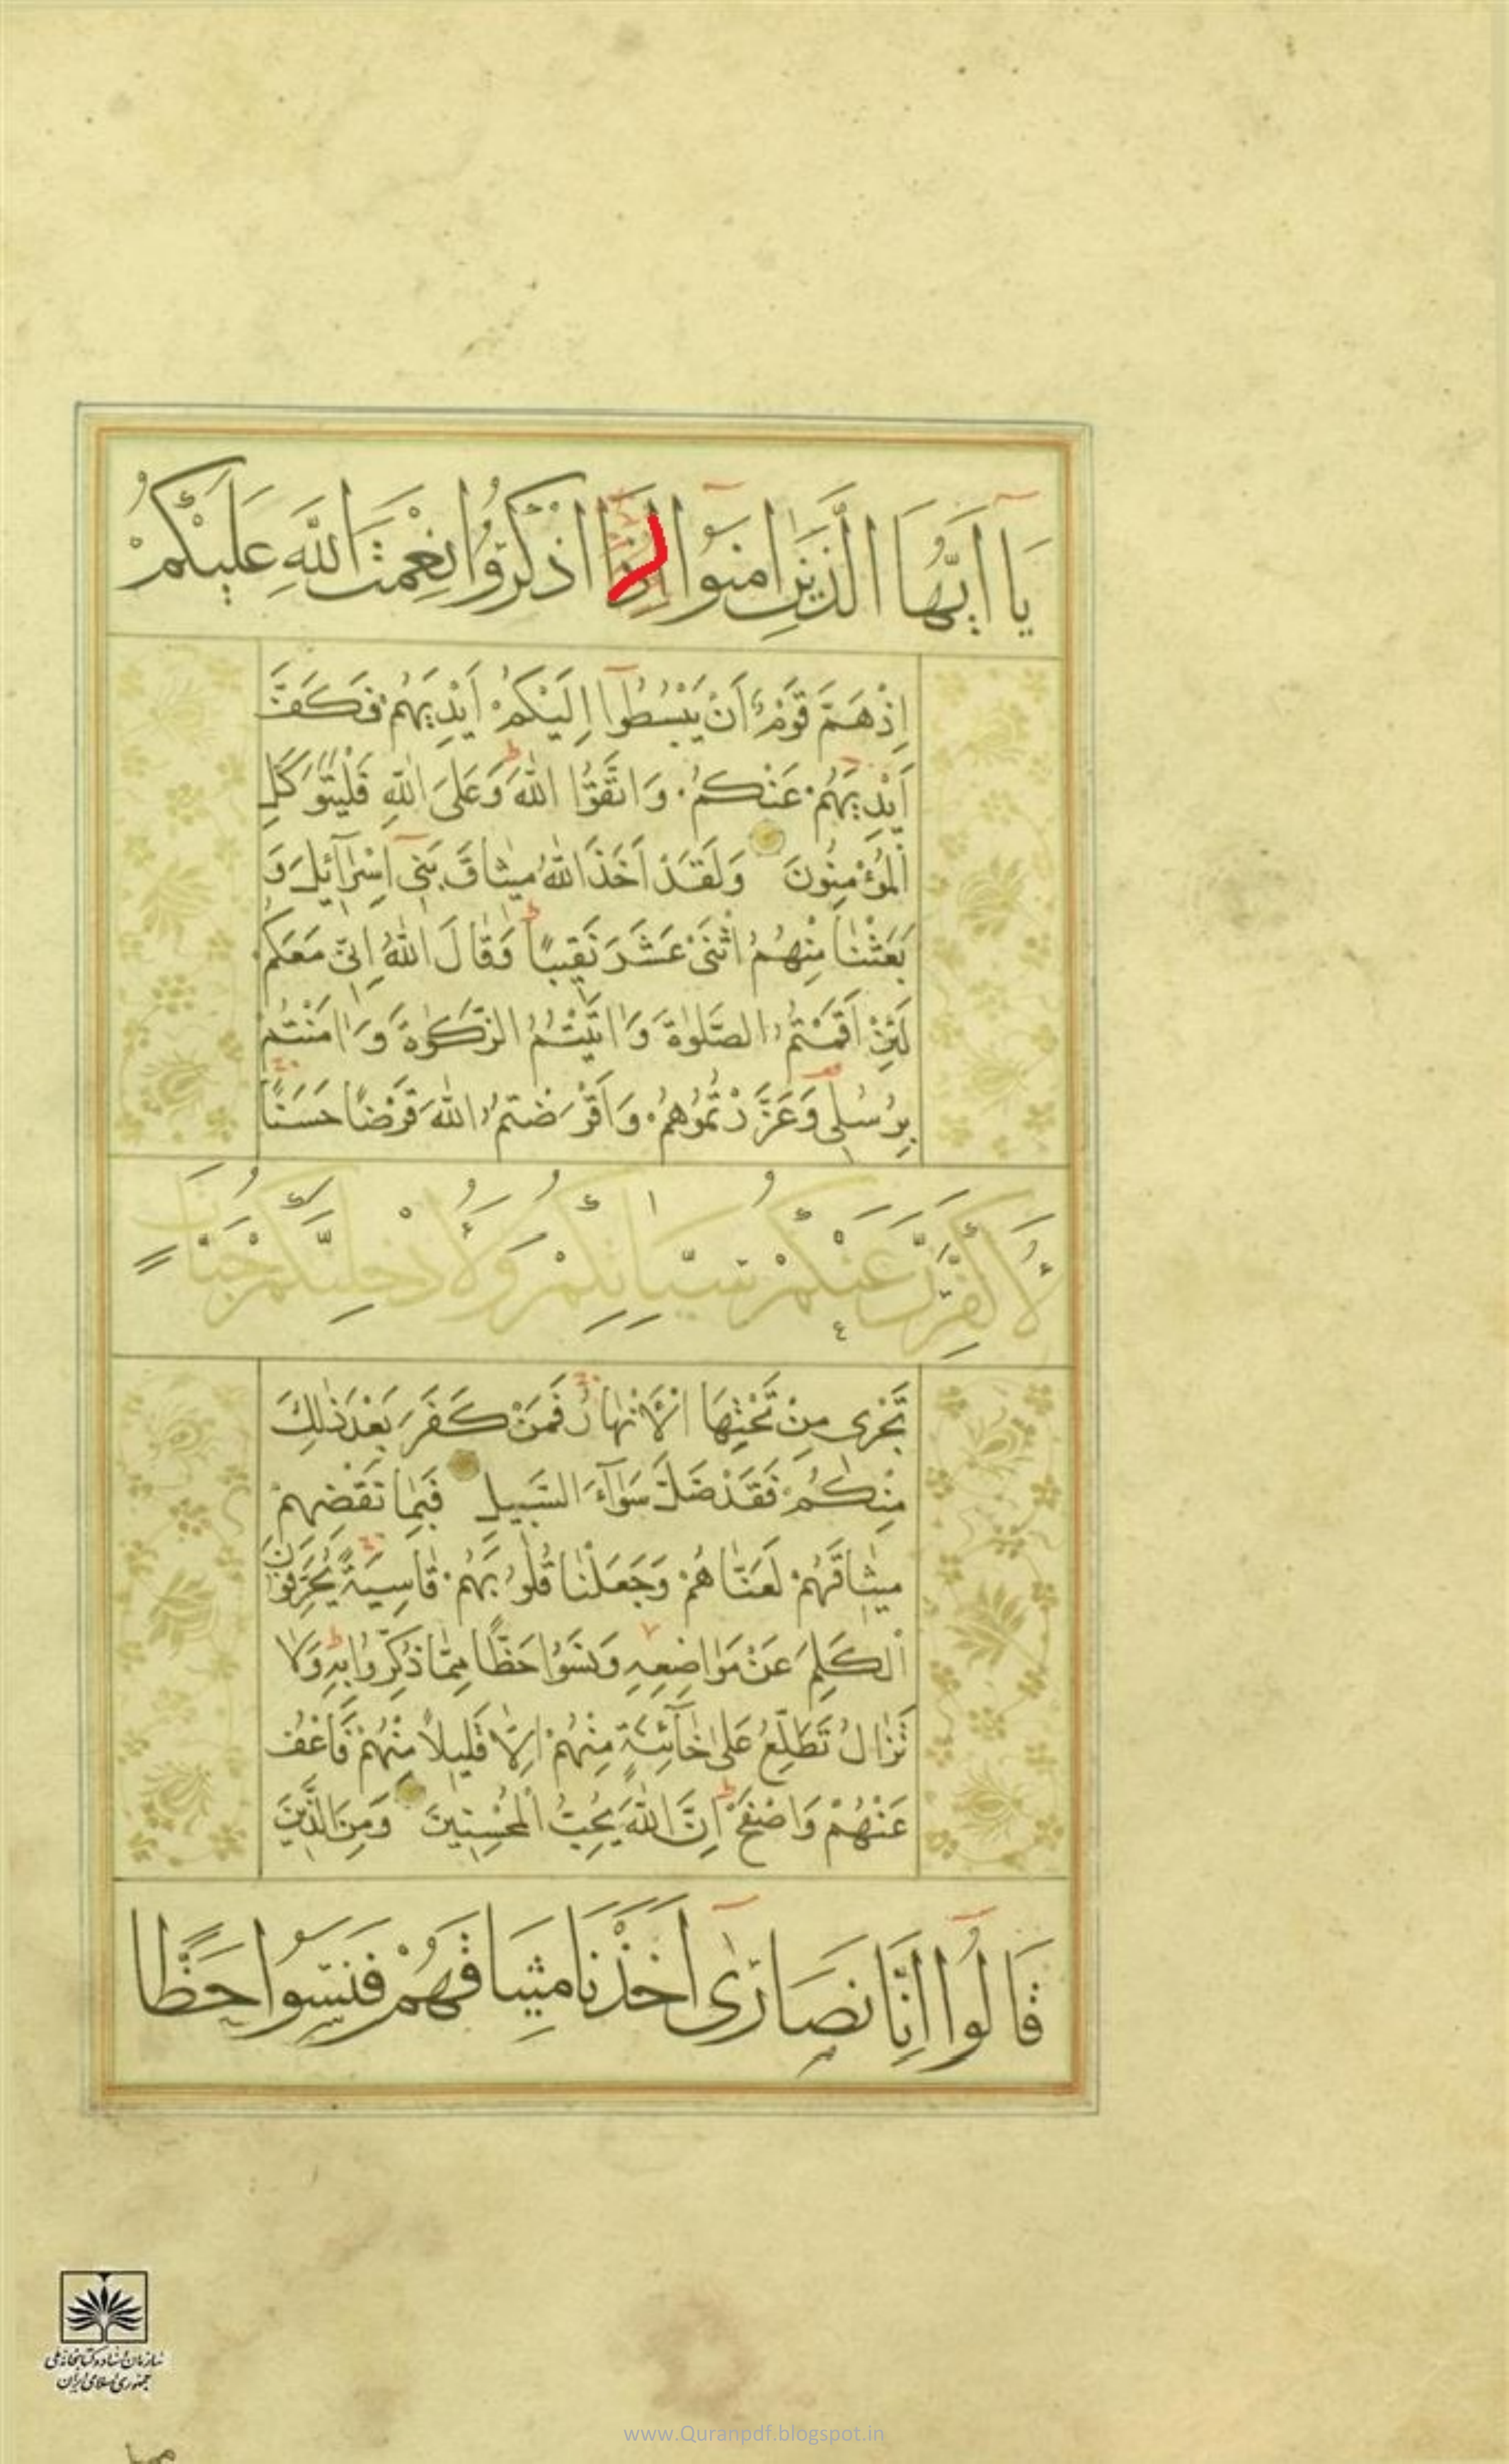 يَا أَيُّهَا الَّذِينَ اٰمَنُوا اذْكُرُوا نِعْمَتَ اللّٰهِ عَلَيْكُمْ
اِذْ هَمَّ قَوْمٌ اَنْ يَبْسُطُوٓا اِلَيْكُمْ اَيْدِيَهُمْ فَكَفَّ
اَيْدِيَهُمْ عَنْكُمْ وَاتَّقُوا اللّٰهَ وَعَلَى اللّٰهِ فَلْيَتَوَكَّلِ
الْمُؤْمِنُونَ وَلَقَدْ اَخَذَ اللّٰهُ مِيثَاقَ بَنِي اِسْرَآئِيلَ وَ
بَعَثْنَا مِنْهُمُ اثْنَيْ عَشَرَ نَقِيبًا وَقَالَ اللّٰهُ اِنِّي مَعَكُمْ
لَئِنْ اَقَمْتُمُ الصَّلٰوةَ وَاٰتَيْتُمُ الزَّكٰوةَ وَاٰمَنْتُمْ
بِرُسُلِي وَعَزَّرْتُمُوهُمْ وَاَقْرَضْتُمُ اللّٰهَ قَرْضًا حَسَنًا
لَأُكَفِّرَنَّ عَنْكُمْ سَيِّئَاتِكُمْ وَلَأُدْخِلَنَّكُمْ جَنَّاتٍ
تَجْرِي مِنْ تَحْتِهَا الْأَنْهَارُ فَمَنْ كَفَرَ بَعْدَ ذٰلِكَ
مِنْكُمْ فَقَدْ ضَلَّ سَوَآءَ السَّبِيلِ فَبِمَا نَقْضِهِمْ
مِيثَاقَهُمْ لَعَنَّاهُمْ وَجَعَلْنَا قُلُوبَهُمْ قَاسِيَةً يُحَرِّفُونَ
الْكَلِمَ عَنْ مَوَاضِعِهِ وَنَسُوا حَظًّا مِمَّا ذُكِّرُوا بِهِ وَلَا
تَزَالُ تَطَّلِعُ عَلَى خَآئِنَةٍ مِنْهُمْ اِلَّا قَلِيلًا مِنْهُمْ فَاعْفُ
عَنْهُمْ وَاصْفَحْ اِنَّ اللّٰهَ يُحِبُّ الْمُحْسِنِينَ وَمِنَ الَّذِينَ
قَالُوا اِنَّا نَصَارٰى اَخَذْنَا مِيثَاقَهُمْ فَنَسُوا حَظًّا
سازمان اسناد و کتابخانه ملی
جمهوری اسلامی ایران
www.Quranpdf.blogspot.in